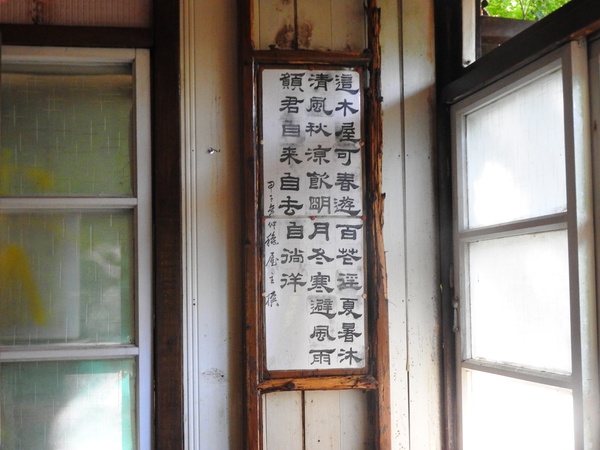 這木屋可春遊百花逕夏暑沐
清風秋涼飲朙月冬寒避風雨
願君自来自去自徜洋
甲子年仲龝屋主撰